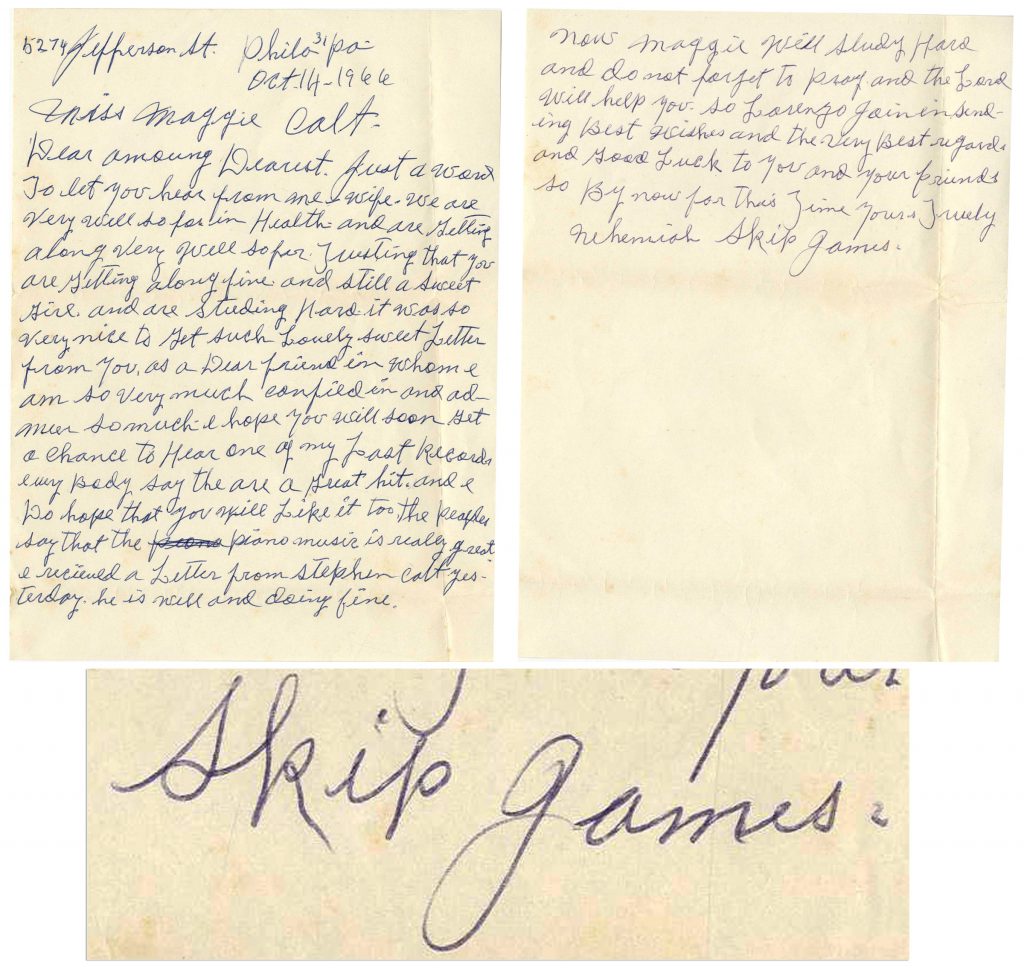 5274 Jefferson St. Phila 31 Pa
Oct-14-1966
Miss Maggie Calt.
Dear amoung Dearest. Just a word
To let you hear from me + wife. we are
very well so far in Health and are getting
along very well so far. Trusting that you
are getting along fine and still a sweet
girl. and are studing Hard. it was so
very nice to get such Lovely sweet Letter
from you, as a Dear friend in whom e
am so very much confied in and ad-
mier so much e hope you will soon get
a chance to Hear one of my Last Records
every Body say the are a great hit. and e
Do hope that you will Like it too the peoples
say that the piano music is realy great
e recieved a Letter from Stephen Calt yes-
terday. he is well and doing fine.
now maggie will study Hard
and do not forget to pray and the Lord
will help you. so Lorenzo Join in send-
ing Best wishes and the very Best regards
and good Luck to you and your friends
so By now for this Time yours Truely
nehemiah Skip James.
Skip James.